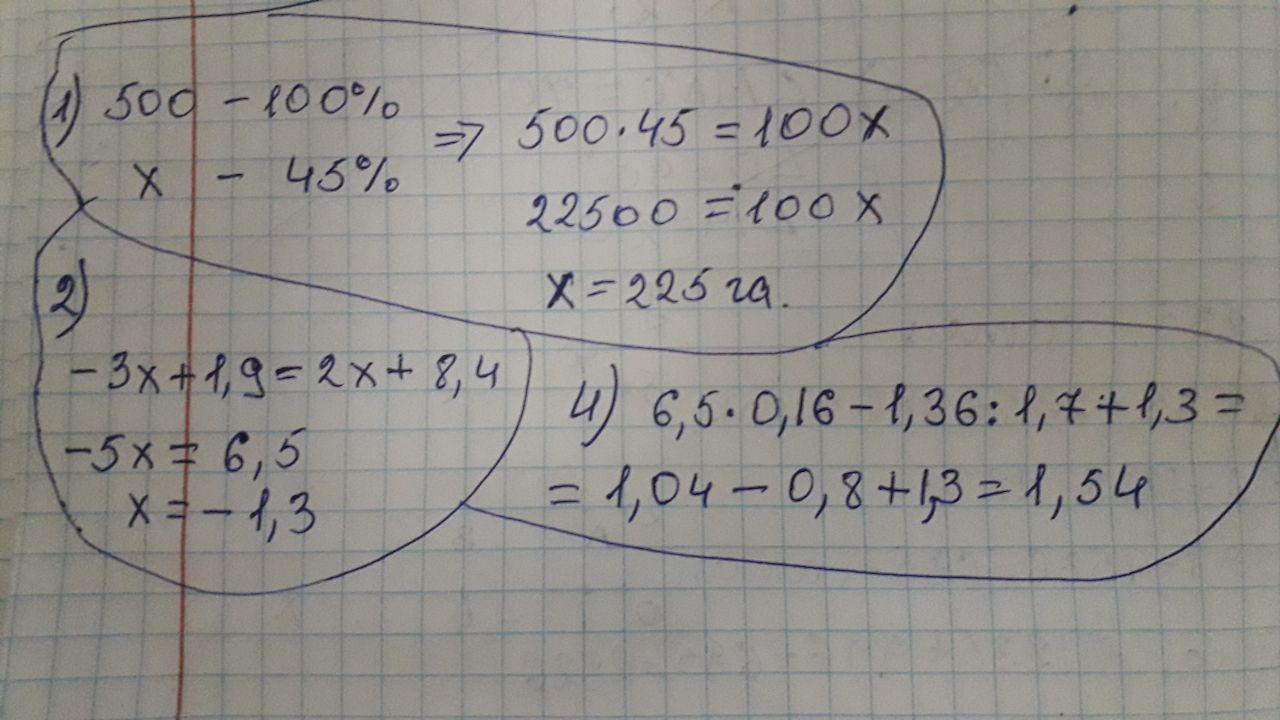 1) 500 - 100%
x - 45%
=> 500·45 = 100x
22500 = 100x
x = 225 га.
2)
-3x+1,9=2x+8,4
-5x = 6,5
x = -1,3
4) 6,5·0,16-1,36:1,7+1,3=
= 1,04-0,8+1,3=1,54